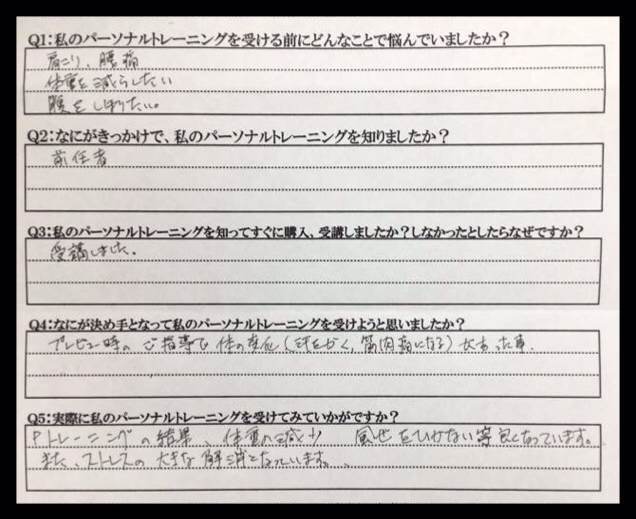 Q1:私のパーソナルトレーニングを受ける前にどんなことで悩んでいましたか？
肩こり、腰痛
体重を減らしたい
腹をしぼりたい。
Q2:なにがきっかけで、私のパーソナルトレーニングを知りましたか？
前任者
Q3:私のパーソナルトレーニングを知ってすぐに購入、受講しましたか？しなかったとしたらなぜですか？
受講しました。
Q4:なにが決め手となって私のパーソナルトレーニングを受けようと思いましたか？
プレビュー時のご指導で体の変化(汗をかく,筋肉痛になる)があった事.
Q5:実際に私のパーソナルトレーニングを受けてみていかがですか？
Pトレーニングの結果、体重の減少 風邪をひかない 良くなっています。
また、ストレスの大きな解消となっています。